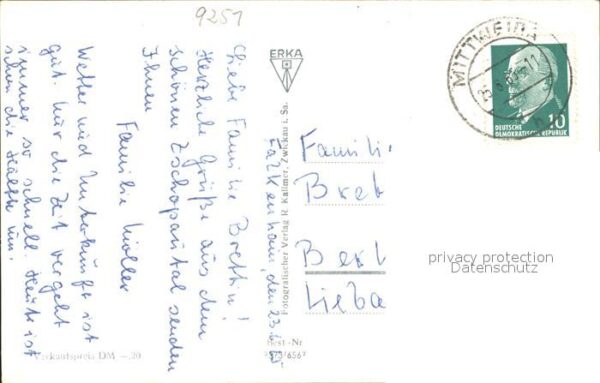 9251
Falkenhain, den 23.6.
Liebe Familie Brettin!
Herzliche Grüße aus dem
schönen Zschopautal senden
Ihnen
Familie Müller
Wetter und Unterkunft ist
gut. Nur die Zeit vergeht
immer so schnell. Heute ist
schon die Hälfte um.
Verkaufspreis DM -.20
ERKA
Fotografischer Verlag R. Kallmer, Zwickau i. Sa.
Best.-Nr
MITTWEIDA
10
DEUTSCHE
DEMOKRATISCHE REPUBLIK
Famili
Bret
Berl
Lieba
privacy protection
Datenschutz